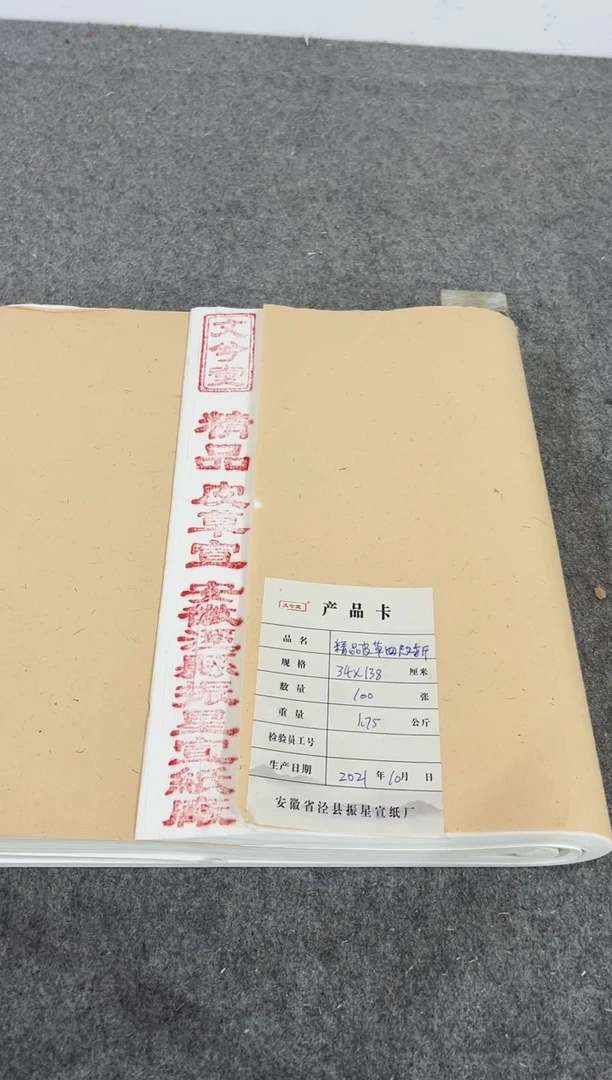 文兮堂
精品皮草宣 安徽泾县振星宣紙廠
文兮堂
产品卡
品名 精品皮草四尺对开
规格 34×138 厘米
数量 100 张
重量 1.75 公斤
检验员工号
生产日期 2021年10月 日
安徽省泾县振星宣纸厂